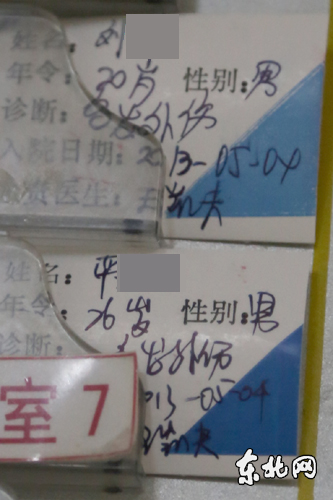 姓名：刘
年令：20岁 性别：男
诊断：多发外伤
入院日期：2013-05-04
责医生：王凯夫
姓名：
年令：26岁 性别：男
诊断：多发外伤
013-05-04
王凯夫
室7
东北网